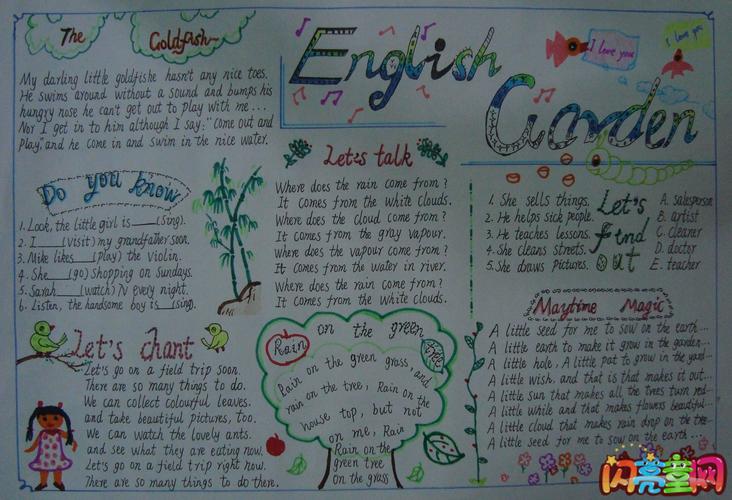 The Goldfish
My darling little goldfishe hasn't any nice toes.
He swims around without a sound and bumps his
hungry nose he can't get out to play with me...
Nor I get in to him although I say: "Come out and
play." and he come in and swim in the nice water.
English
Garden
I love you
I love you
Do you know
1. Look, the little girl is ___(sing).
2. I ___(visit) my grandfather soon.
3. Mike likes ___(play) the violin.
4. She ___(go) shopping on Sundays.
5. Sarah ___(watch) TV every night.
6. Listen, the handsome boy is ___(sing).
Let's talk
Where does the rain come from?
It comes from the white clouds.
Where does the cloud come from?
It comes from the gray vapour.
Where does the vapour come from?
It comes from the water in river.
Where does the rain come from?
It comes from the white clouds.
Let's find out
1. She sells things.
2. He helps sick people.
3. He teaches lessons.
4. She cleans streets.
5. She draws pictures.
A. salesperson
B. artist
C. cleaner
D. doctor
E. teacher
Let's chant
Let's go on a field trip soon.
There are so many things to do.
We can collect colourful leaves.
and take beautiful pictures, too.
We can watch the lovely ants.
and see what they are eating now.
Let's go on a field trip right now.
There are so many things to do there.
Rain on the green tree
Rain on the green grass, and
rain on the tree, Rain on the
house top, but not
on me, Rain
Rain on the
green tree
on the grass
Maytime Magic
A little seed for me to sow on the earth...
A little earth to make it grow in the garden...
A little hole, A little pat to grow in the yard...
A little wish, and that is that makes it out...
A little sun that makes all the trees turn red...
A little while and that makes flowers beautiful...
A little cloud that makes rain drop on the tree...
A little seed for me to sow on the earth...
闪亮童网